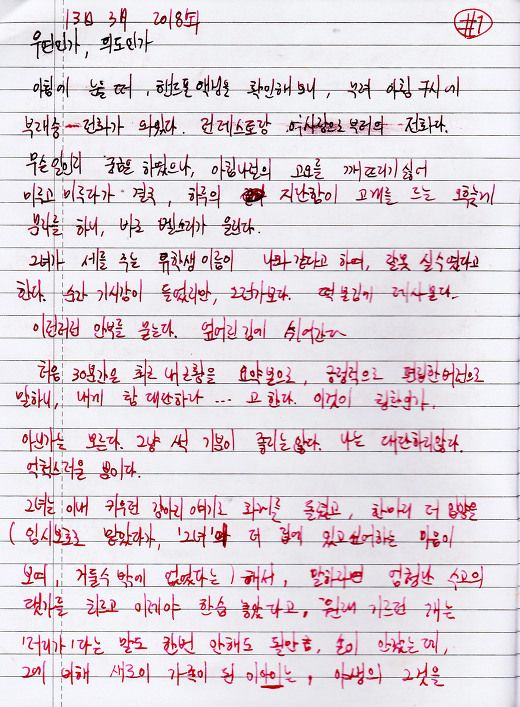 13일 3월 2018년
#1
우연인가, 의도인가
아침에 눈을 떠, 핸드폰 액넘을 확인해보니, 부려 아침 7시에
부재중 전화가 와있다. 런레스토랑 여사장으로 부터의 전화다.
무슨일인지 궁금은 하였으나, 아침나절의 고요를 깨뜨리기 싫어
미루고 미루다가 결국, 하루의 지난함이 고개를 드는 오후늦게
문자를 하니, 바로 벨소리가 울린다.
그녀가 세를 주는 유학생 이름이 나와 같다고 하며, 잘못 실수였다고
한다. 순간 기시감이 들었지만, 그런가보다. 떡 본김에 제사본다.
이런저런 안부를 묻는다. 엎어진김에 쉬어간다
처음 30분간을 최근 내 근황을 요약본으로, 긍정적으로 편집한버전으로
말하니, 내게 참 대단하다 ... 고 한다. 이것이 칭찬인가,
아닌가는 모른다. 그냥 썩 기분이 좋지는않다. 나는 대단하지않다.
억척스러울 뿐이다.
그녀는 이내 키우던 강아지 얘기로 화제를 돌렸고, 한마리 더 입양을
(임시보호로 왔었다가, '그녀'의 더 곁에 있고싶어하는 마음이
보여, 거둘수 밖에 없었다는) 해서, 말하자면 엄청난 수고의
댓가를 치르고 이제야 한숨 놓았다고, 원래 기르던 개는
'저리가'라는 말도 한번 안해도 될만큼, 손이 안갔는데,
그에 비해 새로이 가족이 된 이아이는, 야생의 그것을